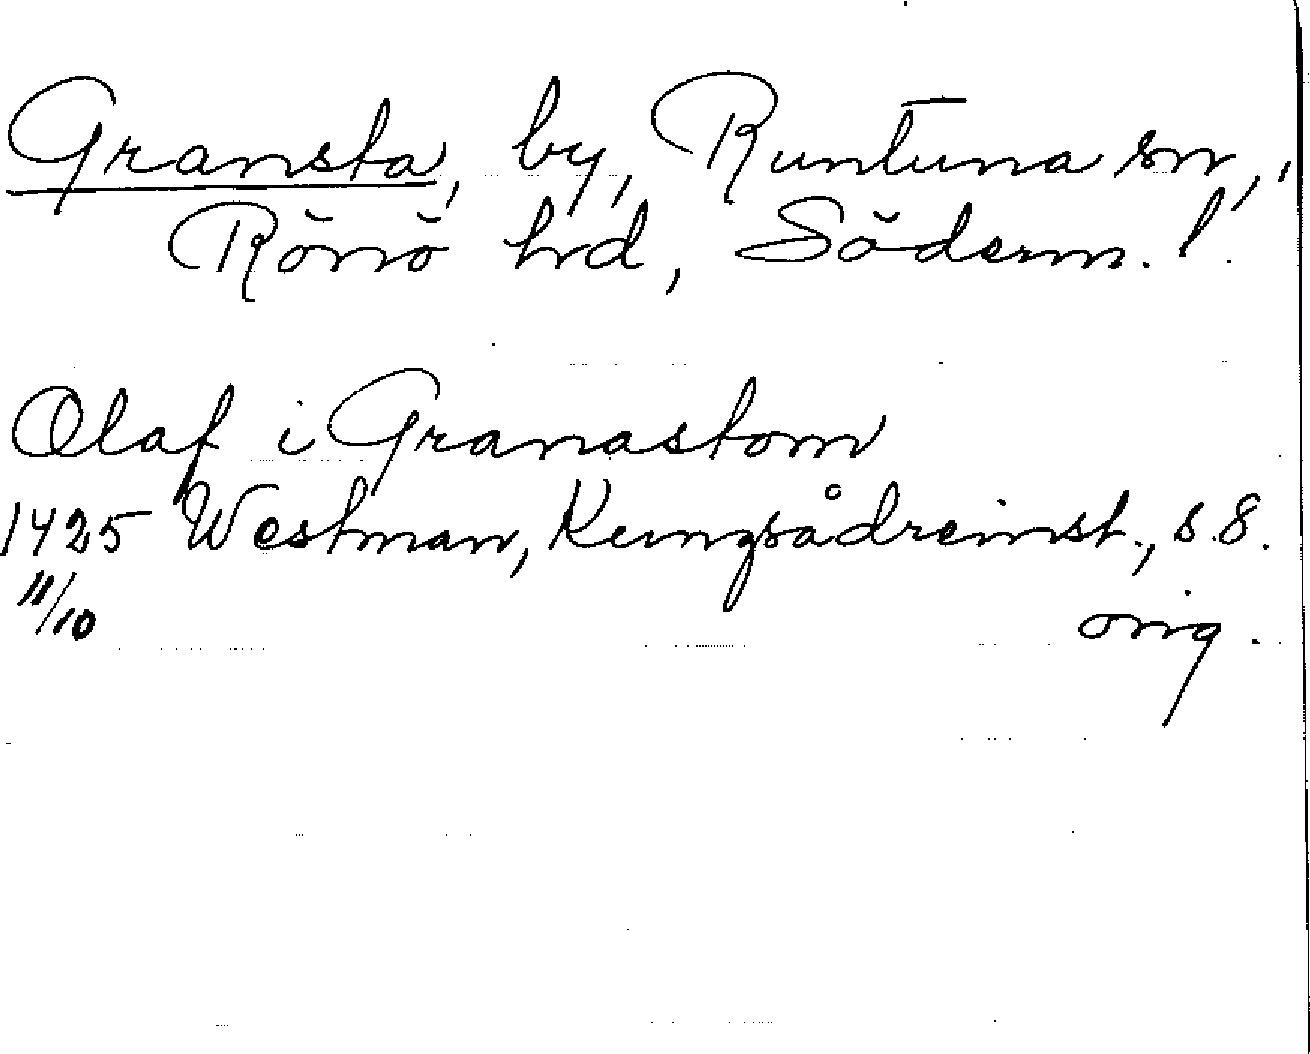 Gransta, by, Runtuna sn,
Rönö hd, Söderm. l.
Olaf i Granastom
1425 Westman, Kungsådreinst., s. 8.
11/10 orig.